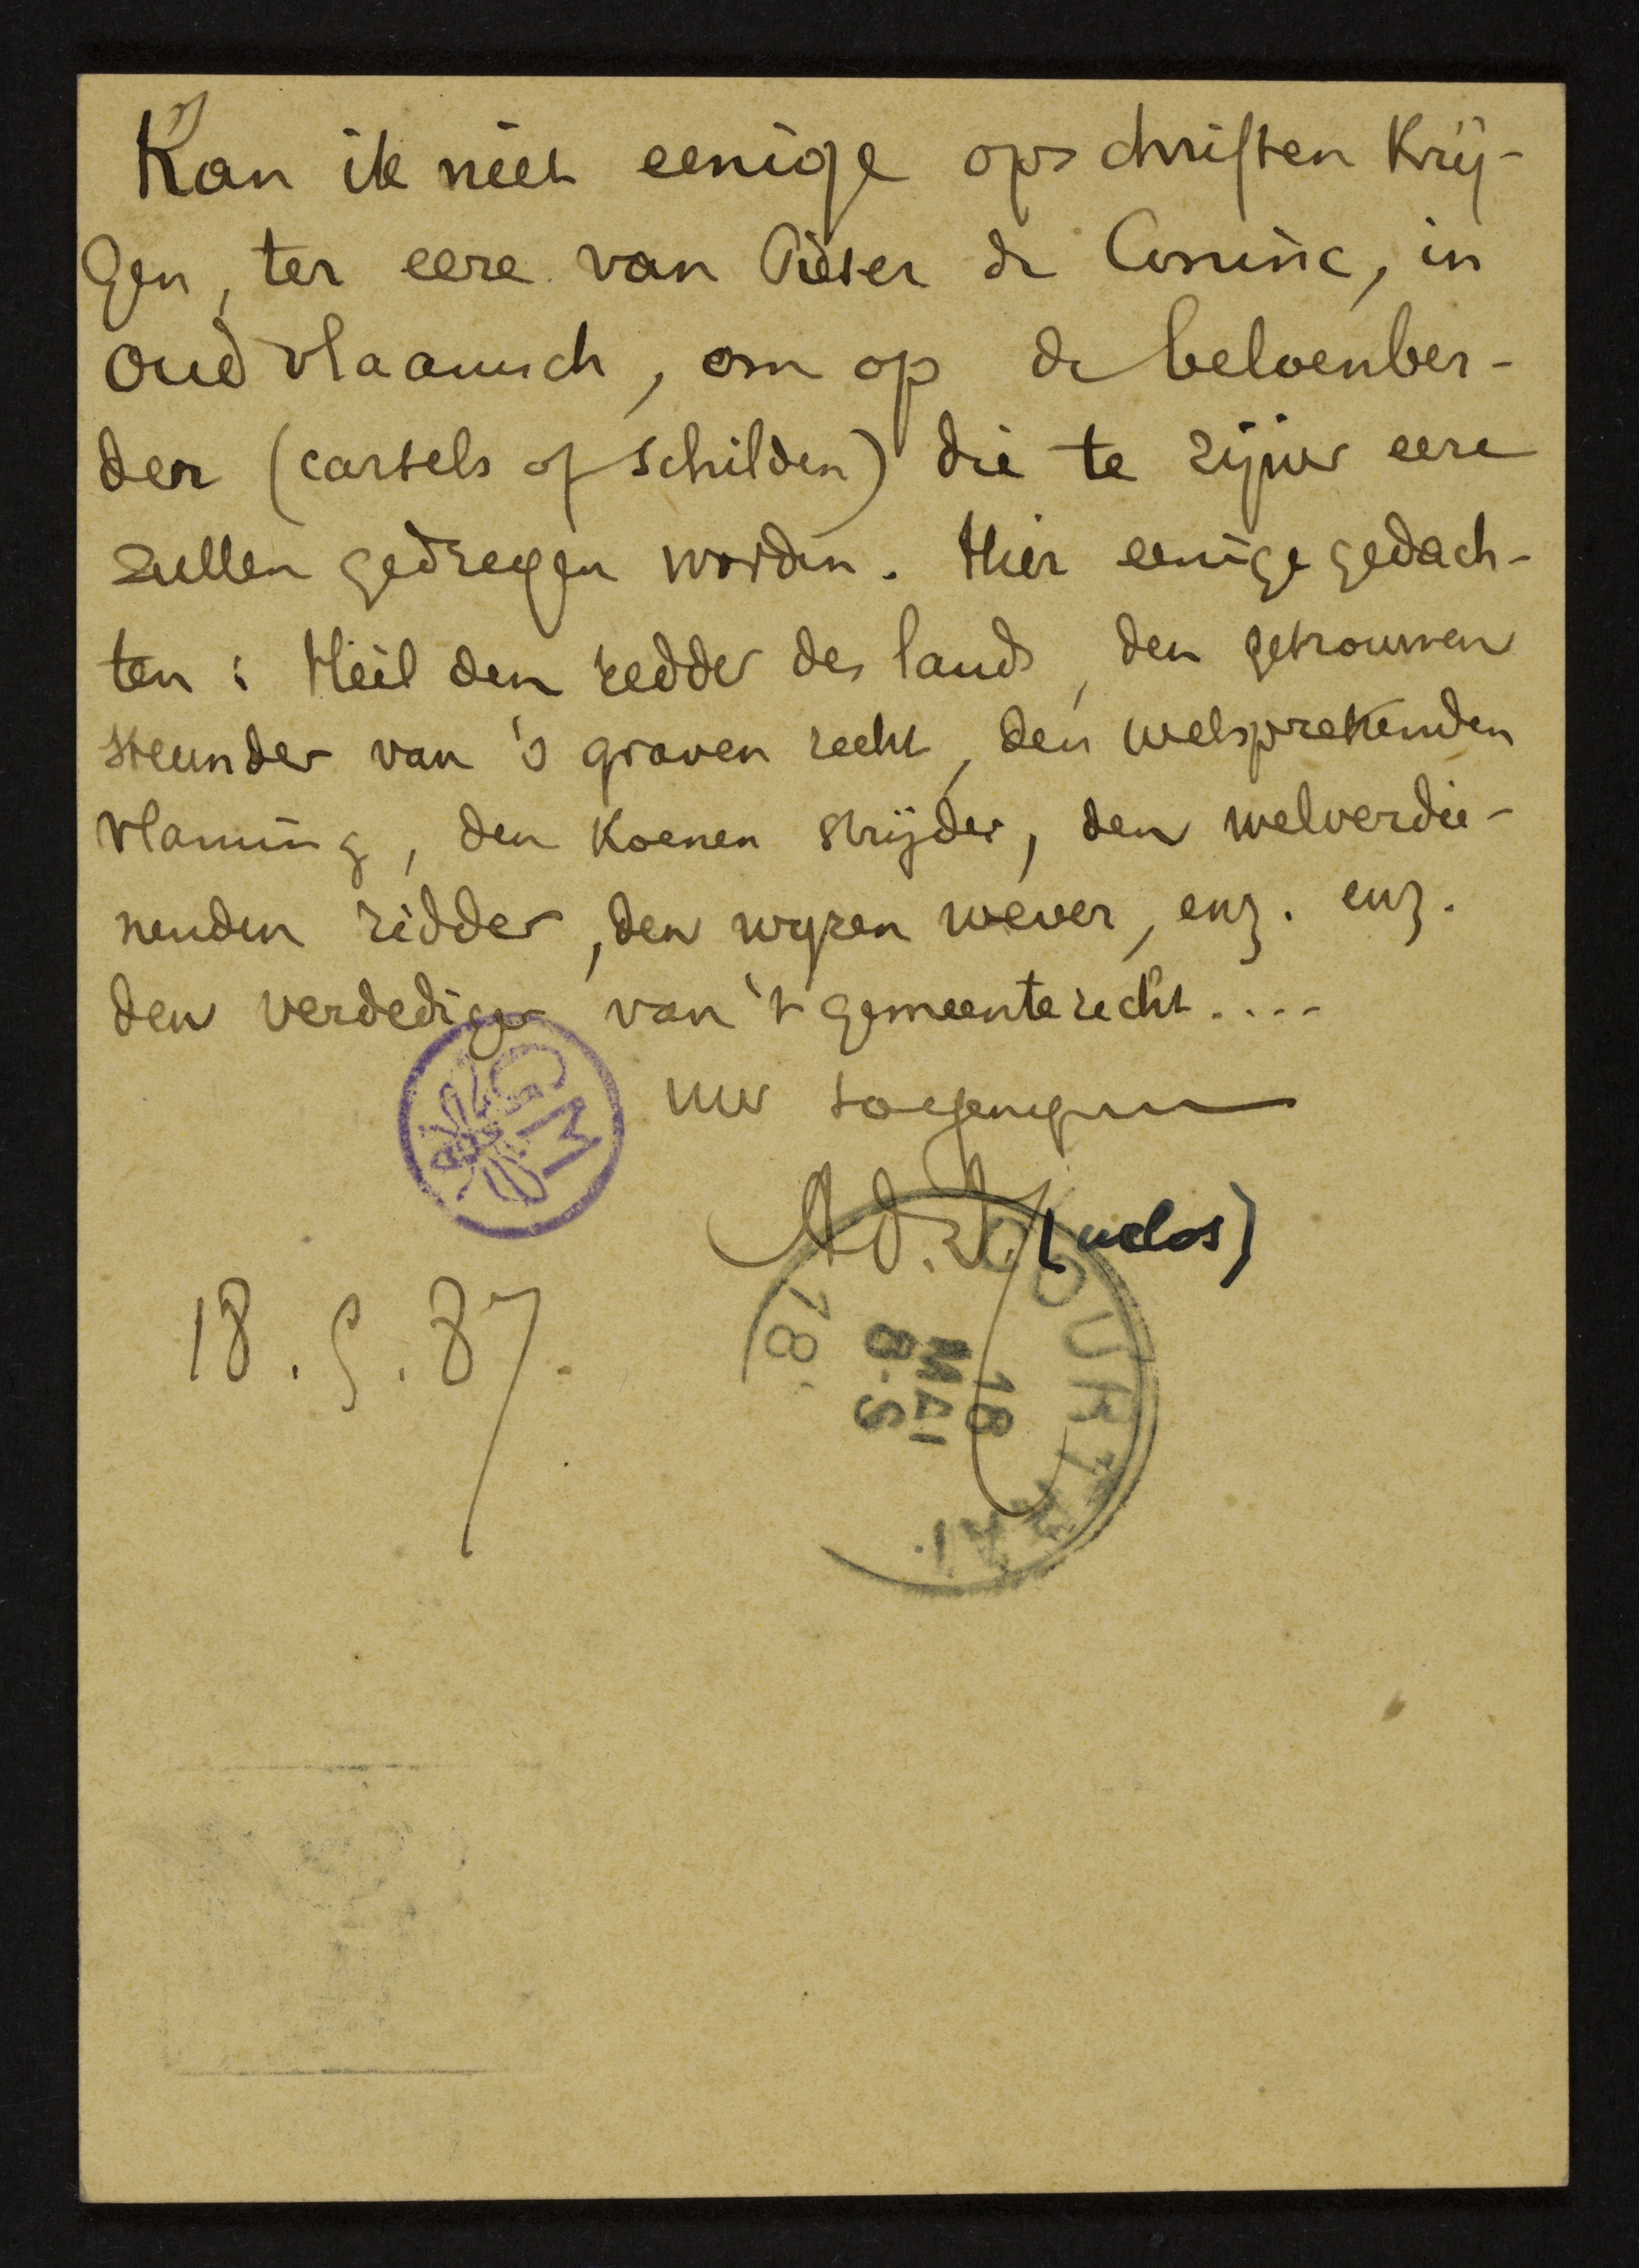 Kan ik niet eenige opschriften krij-
gen, ter eere van Pieter de Coninc, in
oud vlaamsch, om op de beloenber-
der (cartels of schilden) die te zijner eere
zullen gedregen worden. Hier eenige gedach-
ten: Heil den redder des lands, den getrouwen
steunder van 's graven recht, den welsprekenden
vlaming, den koenen strijder, den welverdie-
nenden ridder, den wyzen wever, enz. enz.
den verdediger van 't gemeenterecht....
uw toegenegen
GM
Ad. (uclos)
18.5.87.
COURTRAI
18 MAI 8-S
18